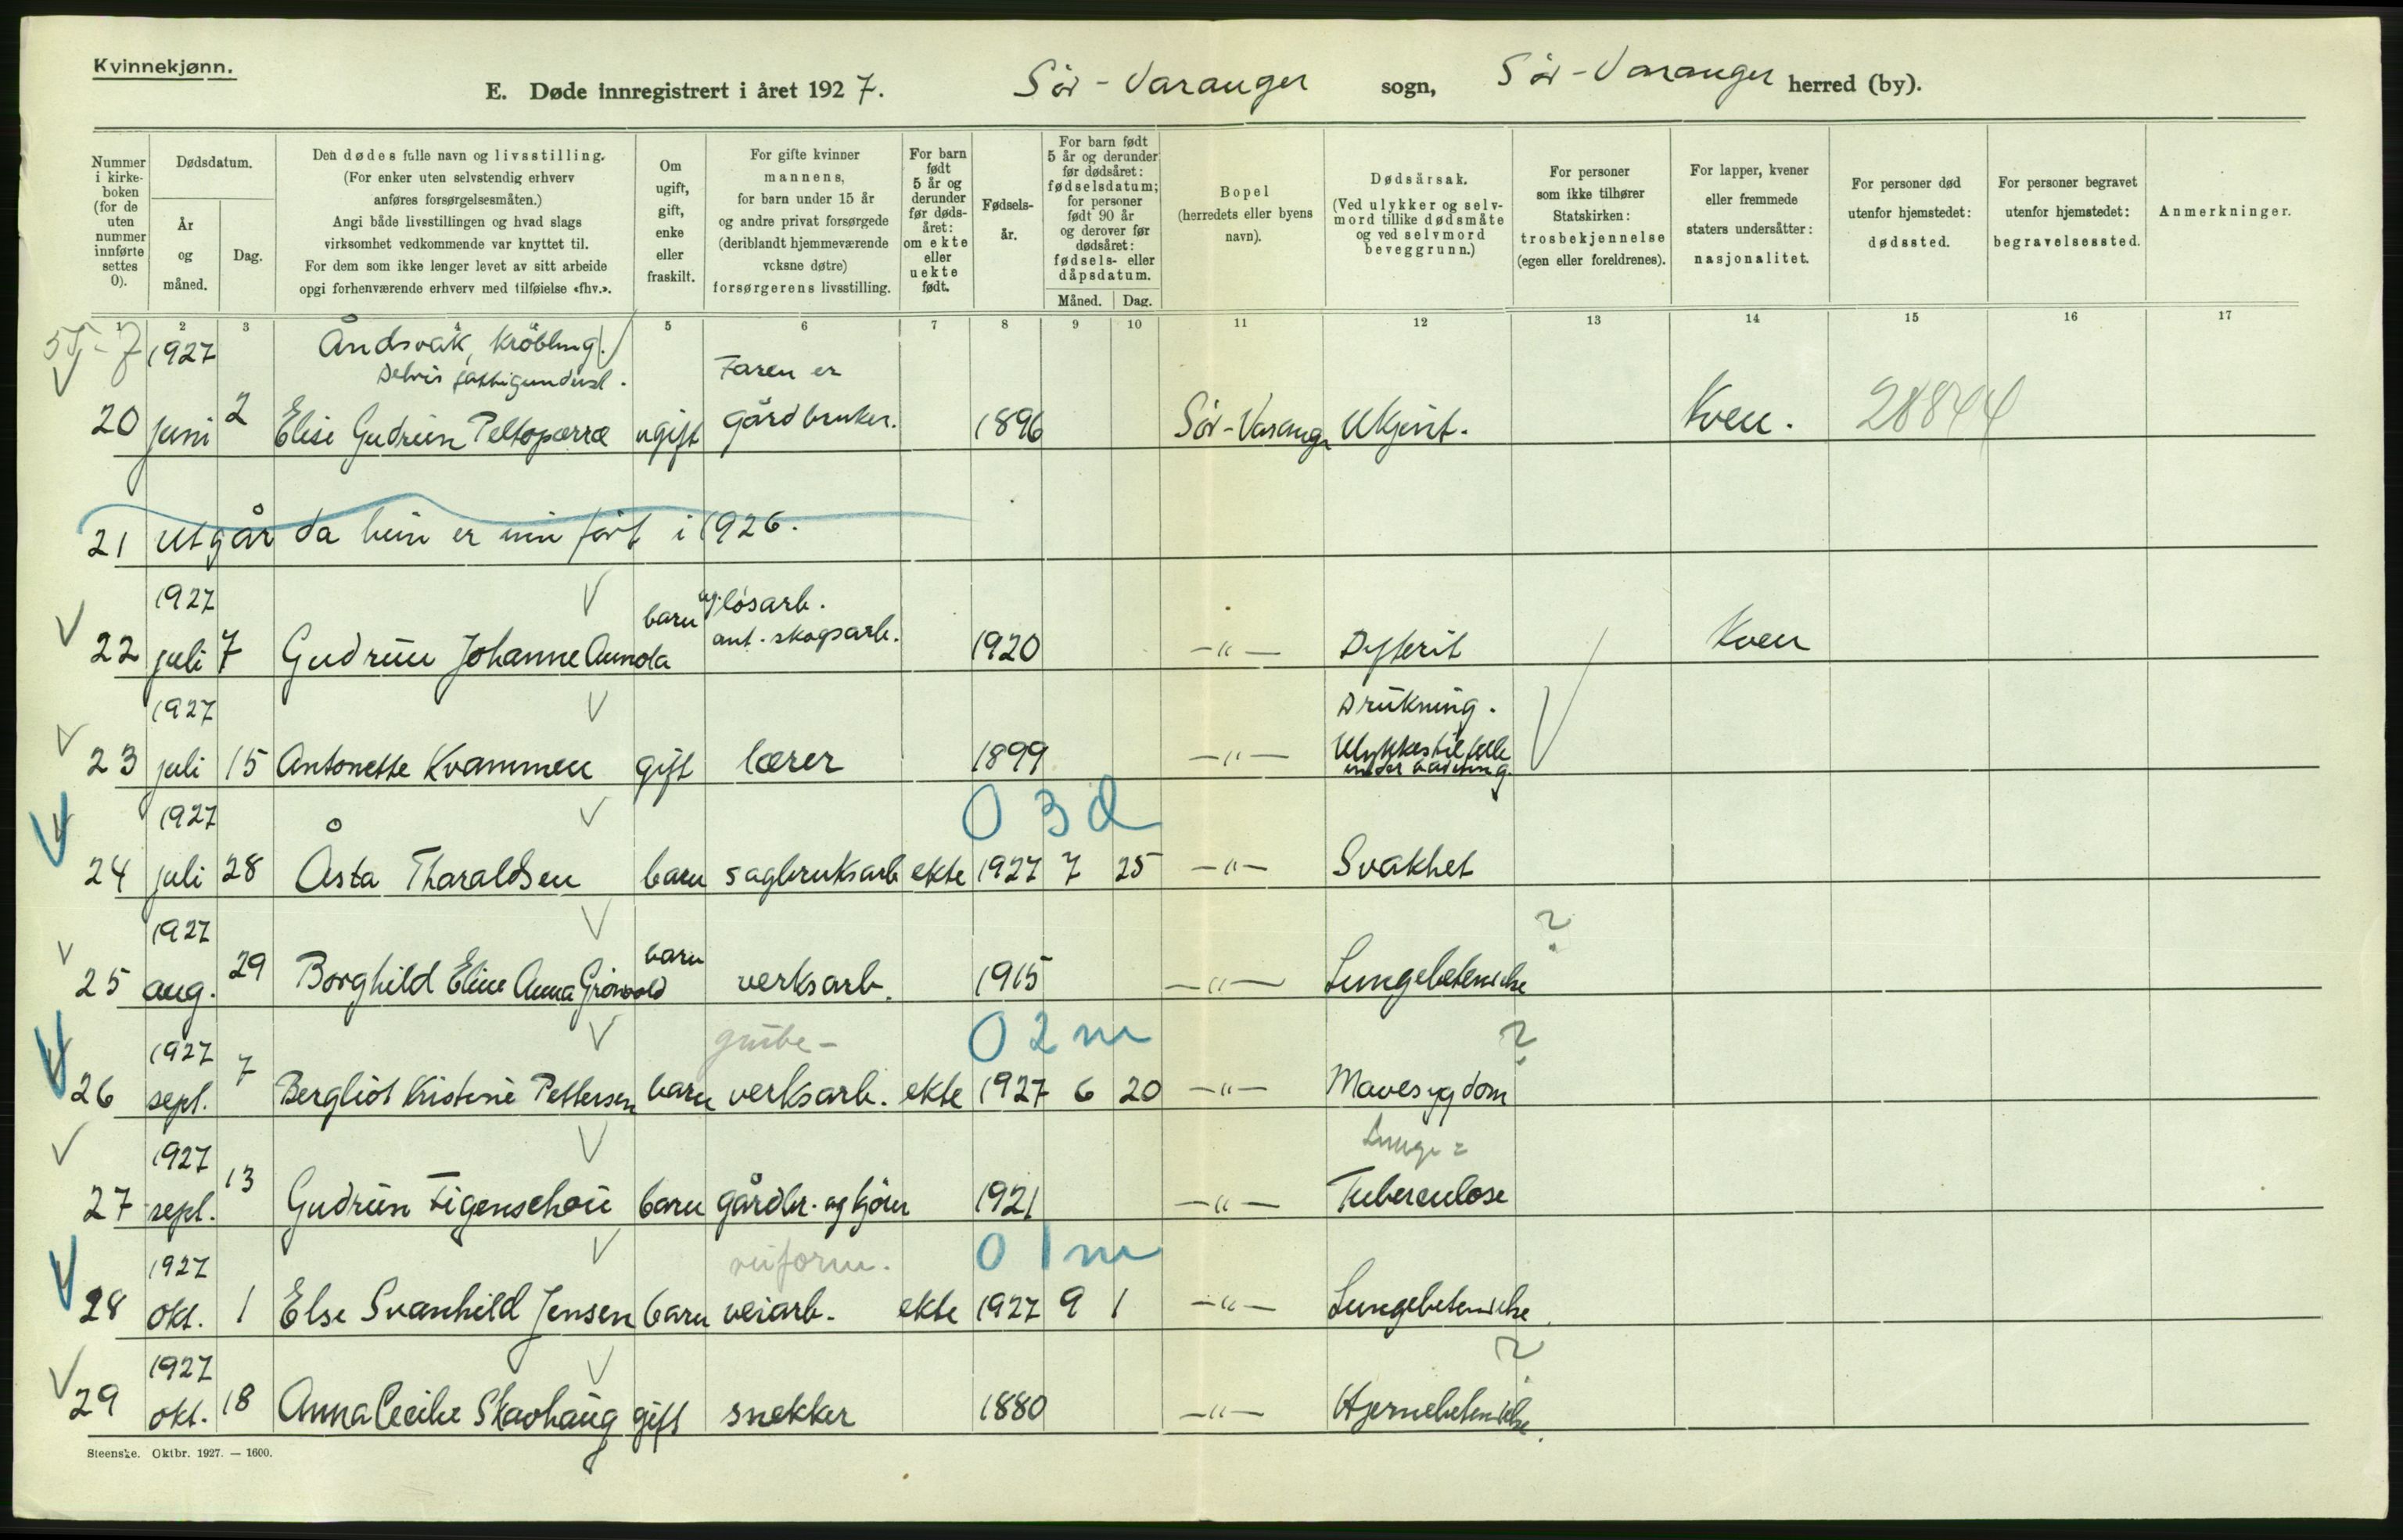 Kvinnekjønn.
E. Døde innregistrert i året 1927. Sör-Varanger sogn, Sör-Varanger herred (by).
Nummer i kirke-boken (for de uten nummer innførte settes 0).
Dødsdatum.
År og måned.
Dag.
Den dødes fulle navn og livsstilling.
(For enker uten selvstendig erhverv
anføres forsørgelsesmåten.)
Angi både livsstillingen og hvad slags
virksomhet vedkommende var knyttet til.
For dem som ikke lenger levet av sitt arbeide
opgi forhenværende erhverv med tilføielse «fhv.».
Om ugift, gift, enke eller fraskilt.
For gifte kvinner
mannens,
for barn under 15 år
og andre privat forsørgede
(deriblandt hjemmeværende
voksne døtre)
forsørgerens livsstilling.
For barn født 5 år og derunder før døds-året: om ekte eller uekte født.
Fødsels-år.
For barn født
5 år og derunder
før dødsåret:
fødselsdatum;
for personer
født 90 år
og derover før
dødsåret:
fødsels- eller
dåpsdatum.
Måned. Dag.
Bopel
(herredets eller byens
navn).
Dødsårsak.
(Ved ulykker og selv-
mord tillike dødsmåte
og ved selvmord
beveggrunn.)
For personer
som ikke tilhører
Statskirken:
trosbekjennelse
(egen eller foreldrenes).
For lapper, kvener
eller fremmede
staters undersåtter:
nasjonalitet.
For personer død
utenfor hjemstedet:
dødssted.
For personer begravet
utenfor hjemstedet:
begravelsessted.
Anmerkninger.
1 2 3 4 5 6 7 8 9 10 11 12 13 14 15 16 17
1927 Åndsvak, Kröbling.
Delvis fattigunderst. Faren er
20 juni 2 Elise Gudrun Peltoparra ugift gårdbruker. 1896 Sör-Varanger Ukjent. Kven. 28844
21 Utgår da hun er inn fört i 1926.
1927 barn og lösarb.
22 juli 7 Gudrun Johanne Annola ant. skogsarb. 1920 -"- Dyfterit Kven
1927 Drukning.
23 juli 15 Antonette Kvammen gift lærer 1899 -"- Ulykkestilfelle
under badning.
1927 0 3 d
24 juli 28 Åsta Tharaldsen barn sagbruksarb ekte 1927 7 25 -"- Svakhet
1927 barn ?
25 aug. 29 Borghild Eline Anna Grönvold verksarb. 1915 -"- Lungebetendelse
1927 grube- 0 2 m ?
26 sept. 7 Bergliot Kristine Pettersen barn verksarb. ekte 1927 6 20 -"- Mavesygdom
1927 Lunge=
27 sept. 13 Gudrun Figenschou barn gårdbr. og kjörer 1921 -"- Tuberculose
1927 0 1 m
28 okt. 1 Else Svanhild Jensen barn veiarb. ekte 1927 9 1 -"- Lungebetendelse.
1927 ?
29 okt. 18 Anna Cecilie Skavhaug gift snekker 1880 -"- Hjernebetendelse.
Steenske. Oktbr. 1927. — 1600.